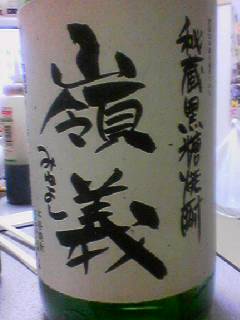 秘蔵黒糖焼酎
嶺義
みねよし